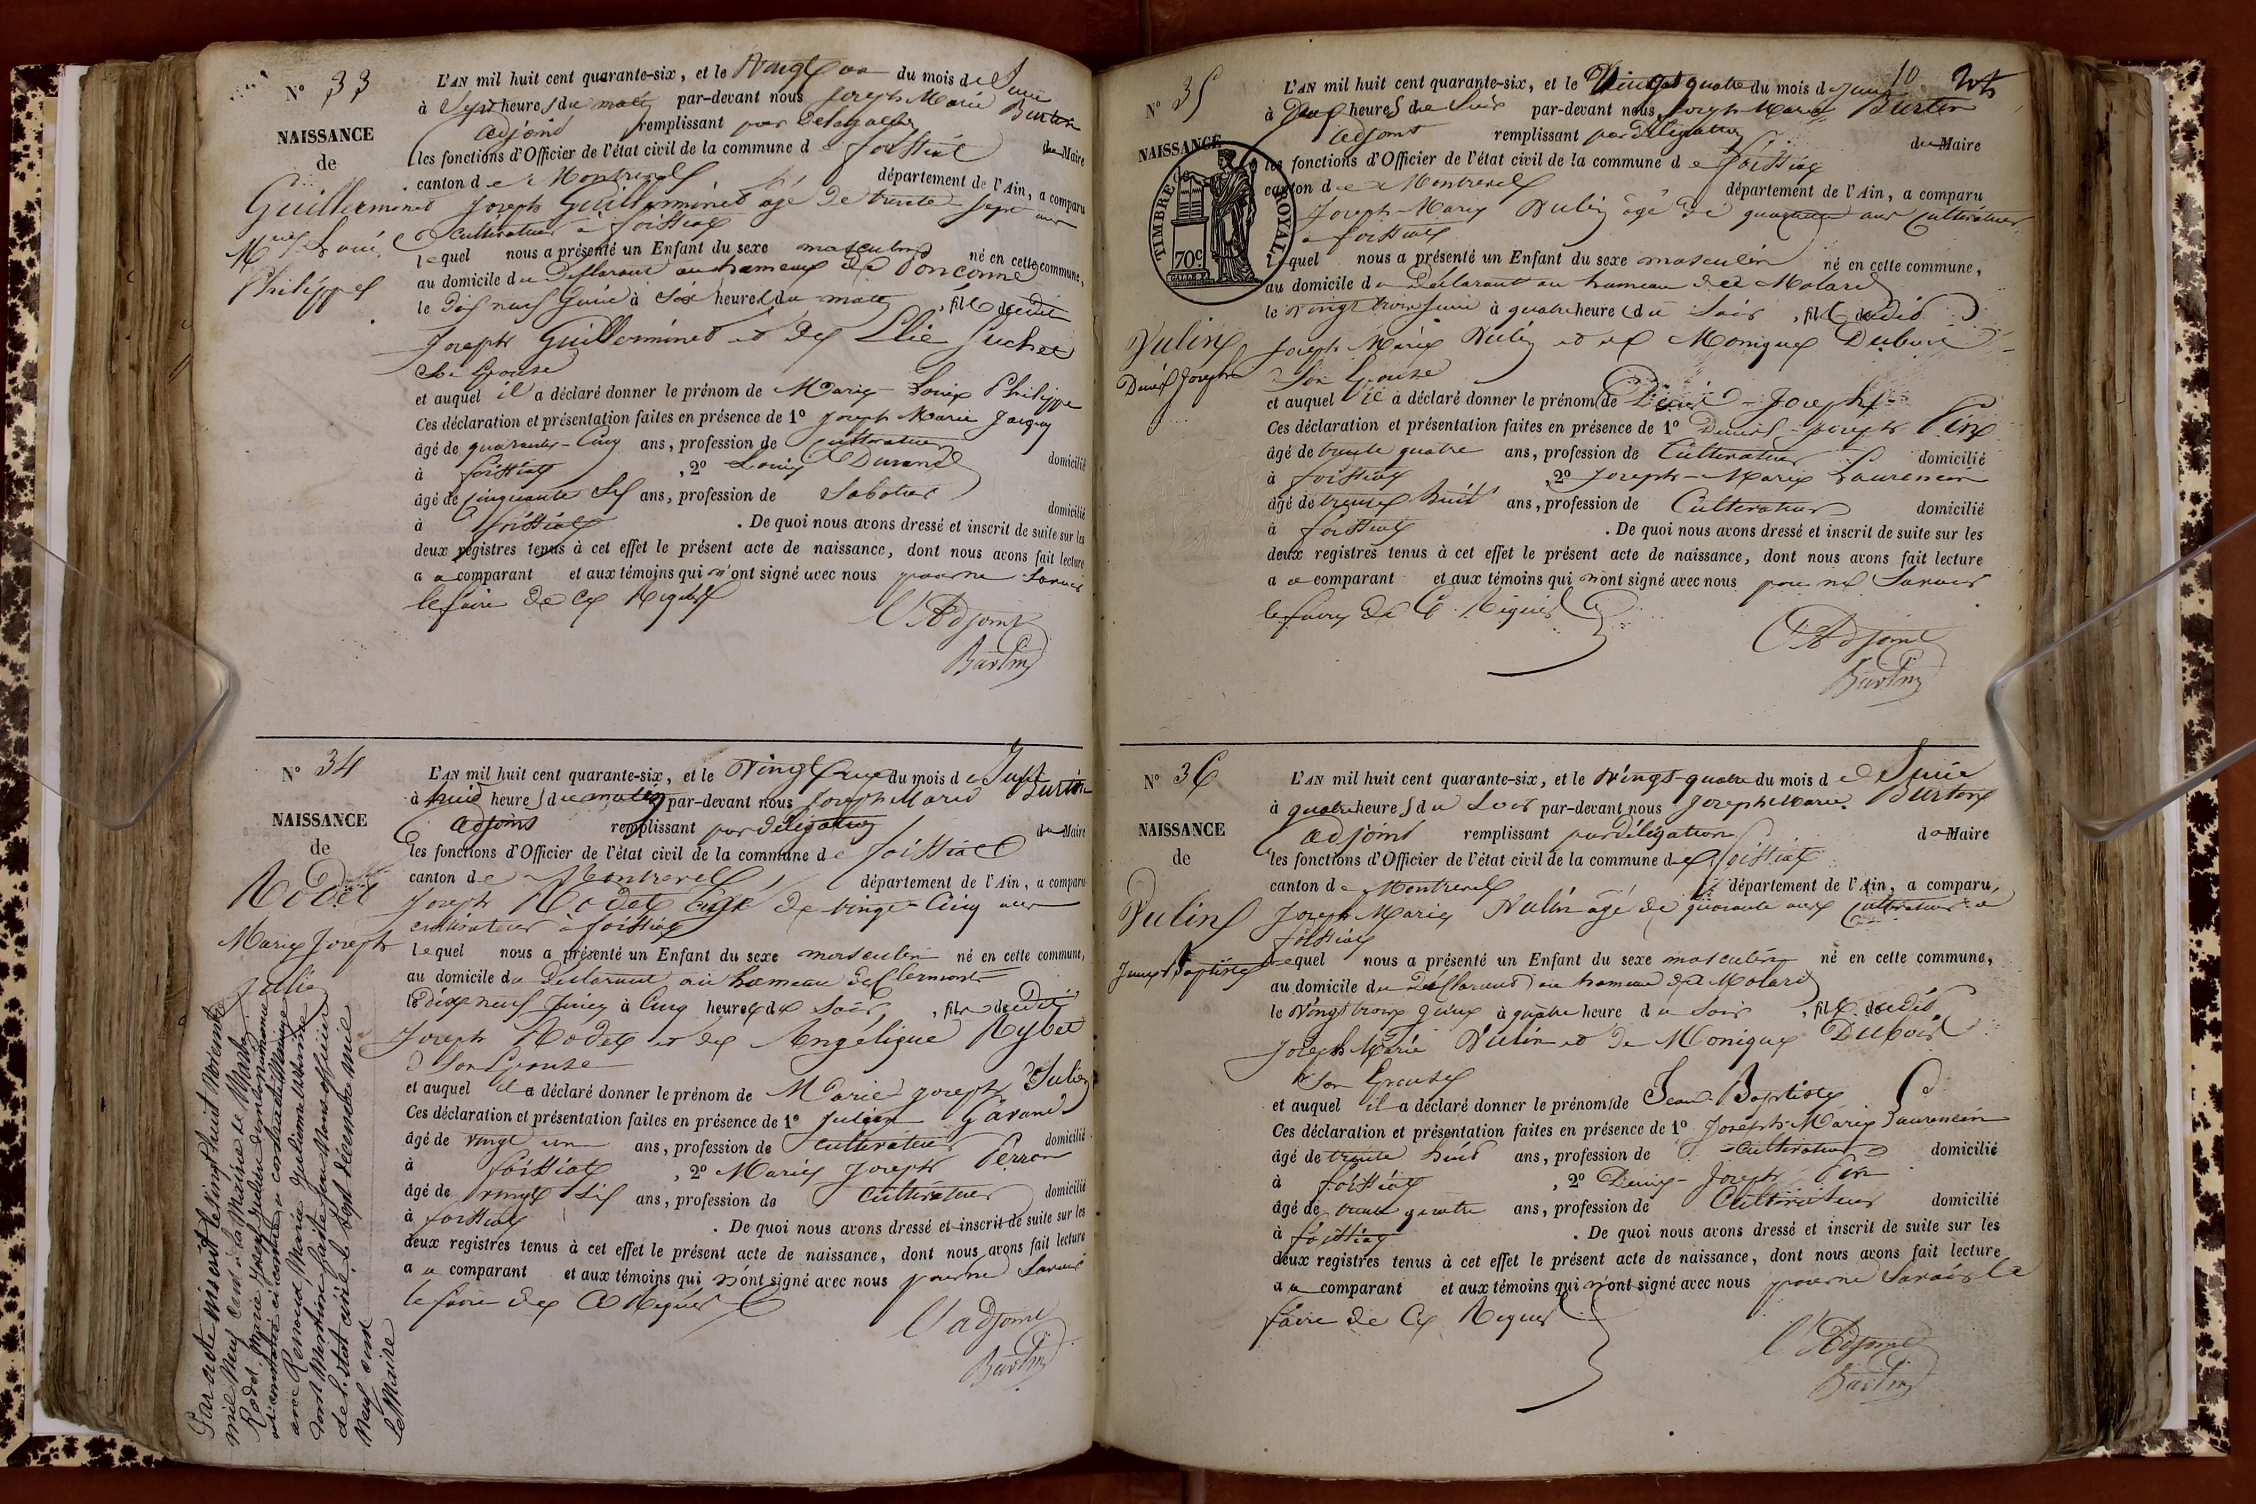 N° 33
NAISSANCE
de
Guillerminet
Philippe
L'AN mil huit cent quarante-six, et le Vingt un du mois de Juin
à Sept heures du matin par-devant nous Joseph Marie Burtin
adjoint remplissant par délégation
les fonctions d'Officier de l'état civil de la commune de foissiat du Maire
canton de Montrevel département de l'Ain, a comparu
Joseph Guillerminet agé de trente sept ans
cultivateur à foissiat
lequel nous a présenté un Enfant du sexe masculin né en cette commune,
au domicile du Déclarant au hameau de
le dix neuf Juin à Six heures du matin, fils dudit
Joseph Guillerminet et de Suchet
Son Epouse
et auquel il a déclaré donner le prénom de Marie Louis Philippe
Ces déclaration et présentation faites en présence de 1° Joseph Marie
âgé de quarante-Cinq ans, profession de cultivateur domicilié
à foissiat, 2° Louis Durand
âgé de cinquante Six ans, profession de Sabotier domicilié
à foissiat. De quoi nous avons dressé et inscrit de suite sur les
deux registres tenus à cet effet le présent acte de naissance, dont nous avons fait lecture
a u comparant et aux témoins qui n'ont signé avec nous pour ne Savoir
le faire de ce Requis
L'Adjoint
Burtin
N° 34
NAISSANCE
de
Rodet
Marie Joseph
Julien
L'AN mil huit cent quarante-six, et le Vingt un du mois de Juin
à huit heures du matin par-devant nous Joseph Marie Burtin
adjoint remplissant par délégation du Maire
les fonctions d'Officier de l'état civil de la commune de foissiat
canton de Montrevel département de l'Ain, a comparu
Joseph Rodet âgé de vingt-Cinq ans
cultivateur à foissiat
lequel nous a présenté un Enfant du sexe masculin né en cette commune,
au domicile du Déclarant au hameau de Clermont
le dix neuf Juin à Cinq heures du Soir, fils dudit
Joseph Rodet et de Angélique
Son Epouse
et auquel il a déclaré donner le prénom de Marie Joseph Julien
Ces déclaration et présentation faites en présence de 1° Julien
âgé de vingt un ans, profession de cultivateur domicilié
à foissiat, 2° Marie Joseph Perron
âgé de vingt Six ans, profession de Cultivateur domicilié
à foissiat. De quoi nous avons dressé et inscrit de suite sur les
deux registres tenus à cet effet le présent acte de naissance, dont nous avons fait lecture
a u comparant et aux témoins qui n'ont signé avec nous pour ne Savoir
le faire de Ce Requis
L'adjoint
Burtin
Par acte inscrit le vingt huit novembre
mil neuf cent à la Mairie de
Rodet Marie Joseph Julien dont la naissance
est constatée ci contre a contracté Mariage
avec Renoud Marie
dont Mention faite par Nous officier
de l'état civil le sept décembre mil
neuf cent
Le Maire
N° 35
10
NAISSANCE
TIMBRE ROYAL
70c
Vulin
Denis Joseph
L'AN mil huit cent quarante-six, et le Vingt quatre du mois de Juin
à heures du Soir par-devant nous Joseph Marie Burtin
adjoint remplissant par délégation du Maire
les fonctions d'Officier de l'état civil de la commune de foissiat
canton de Montrevel département de l'Ain, a comparu
Joseph Marie Vulin âgé de quarante ans Cultivateur
à foissiat
lequel nous a présenté un Enfant du sexe masculin né en cette commune,
au domicile du Déclarant au hameau de Molard
le vingt trois Juin à quatre heures du Soir, fils dudit
Joseph Marie Vulin et de Monique Dubois
Son Epouse
et auquel il a déclaré donner le prénom de Denis - Joseph
Ces déclaration et présentation faites en présence de 1° Denis - Joseph
âgé de trente quatre ans, profession de Cultivateur domicilié
à foissiat, 2° Joseph-Marie Laurencin
âgé de trente huit ans, profession de Cultivateur domicilié
à foissiat. De quoi nous avons dressé et inscrit de suite sur les
deux registres tenus à cet effet le présent acte de naissance, dont nous avons fait lecture
a u comparant et aux témoins qui n'ont signé avec nous pour ne Savoir
le faire de Ce Requis
L'Adjoint
Burtin
N° 36
NAISSANCE
de
Vulin
Jean Baptiste
L'AN mil huit cent quarante-six, et le Vingt-quatre du mois de Juin
à quatre heures du Soir par-devant nous Joseph Marie Burtin
adjoint remplissant par délégation du Maire
les fonctions d'Officier de l'état civil de la commune de foissiat
canton de Montrevel département de l'Ain, a comparu
Joseph Marie Vulin âgé de quarante ans Cultivateur à
foissiat
lequel nous a présenté un Enfant du sexe masculin né en cette commune,
au domicile du Déclarant au hameau de Molard
le Vingt trois Juin à quatre heure du Soir, fils dudit
Joseph Marie Vulin et de Monique Dubois
Son Epouse
et auquel il a déclaré donner le prénom de Jean Baptiste
Ces déclaration et présentation faites en présence de 1° Joseph Marie Laurencin
âgé de trente huit ans, profession de Cultivateur domicilié
à foissiat, 2° Denis - Joseph
âgé de trente quatre ans, profession de Cultivateur domicilié
à foissiat. De quoi nous avons dressé et inscrit de suite sur les
deux registres tenus à cet effet le présent acte de naissance, dont nous avons fait lecture
a u comparant et aux témoins qui n'ont signé avec nous pour ne Savoir le
faire de Ce Requis
L'Adjoint
Burtin